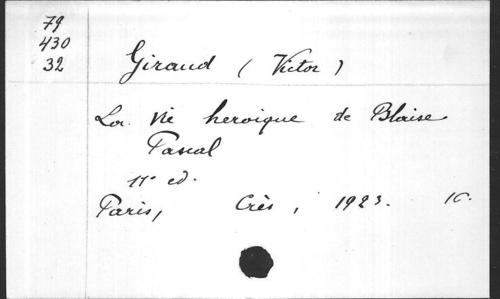 79
430
32
Giraud (Victor)
La vie heroique de Blaise
Pascal
11e ed.
Paris, Crès, 1923. 16.